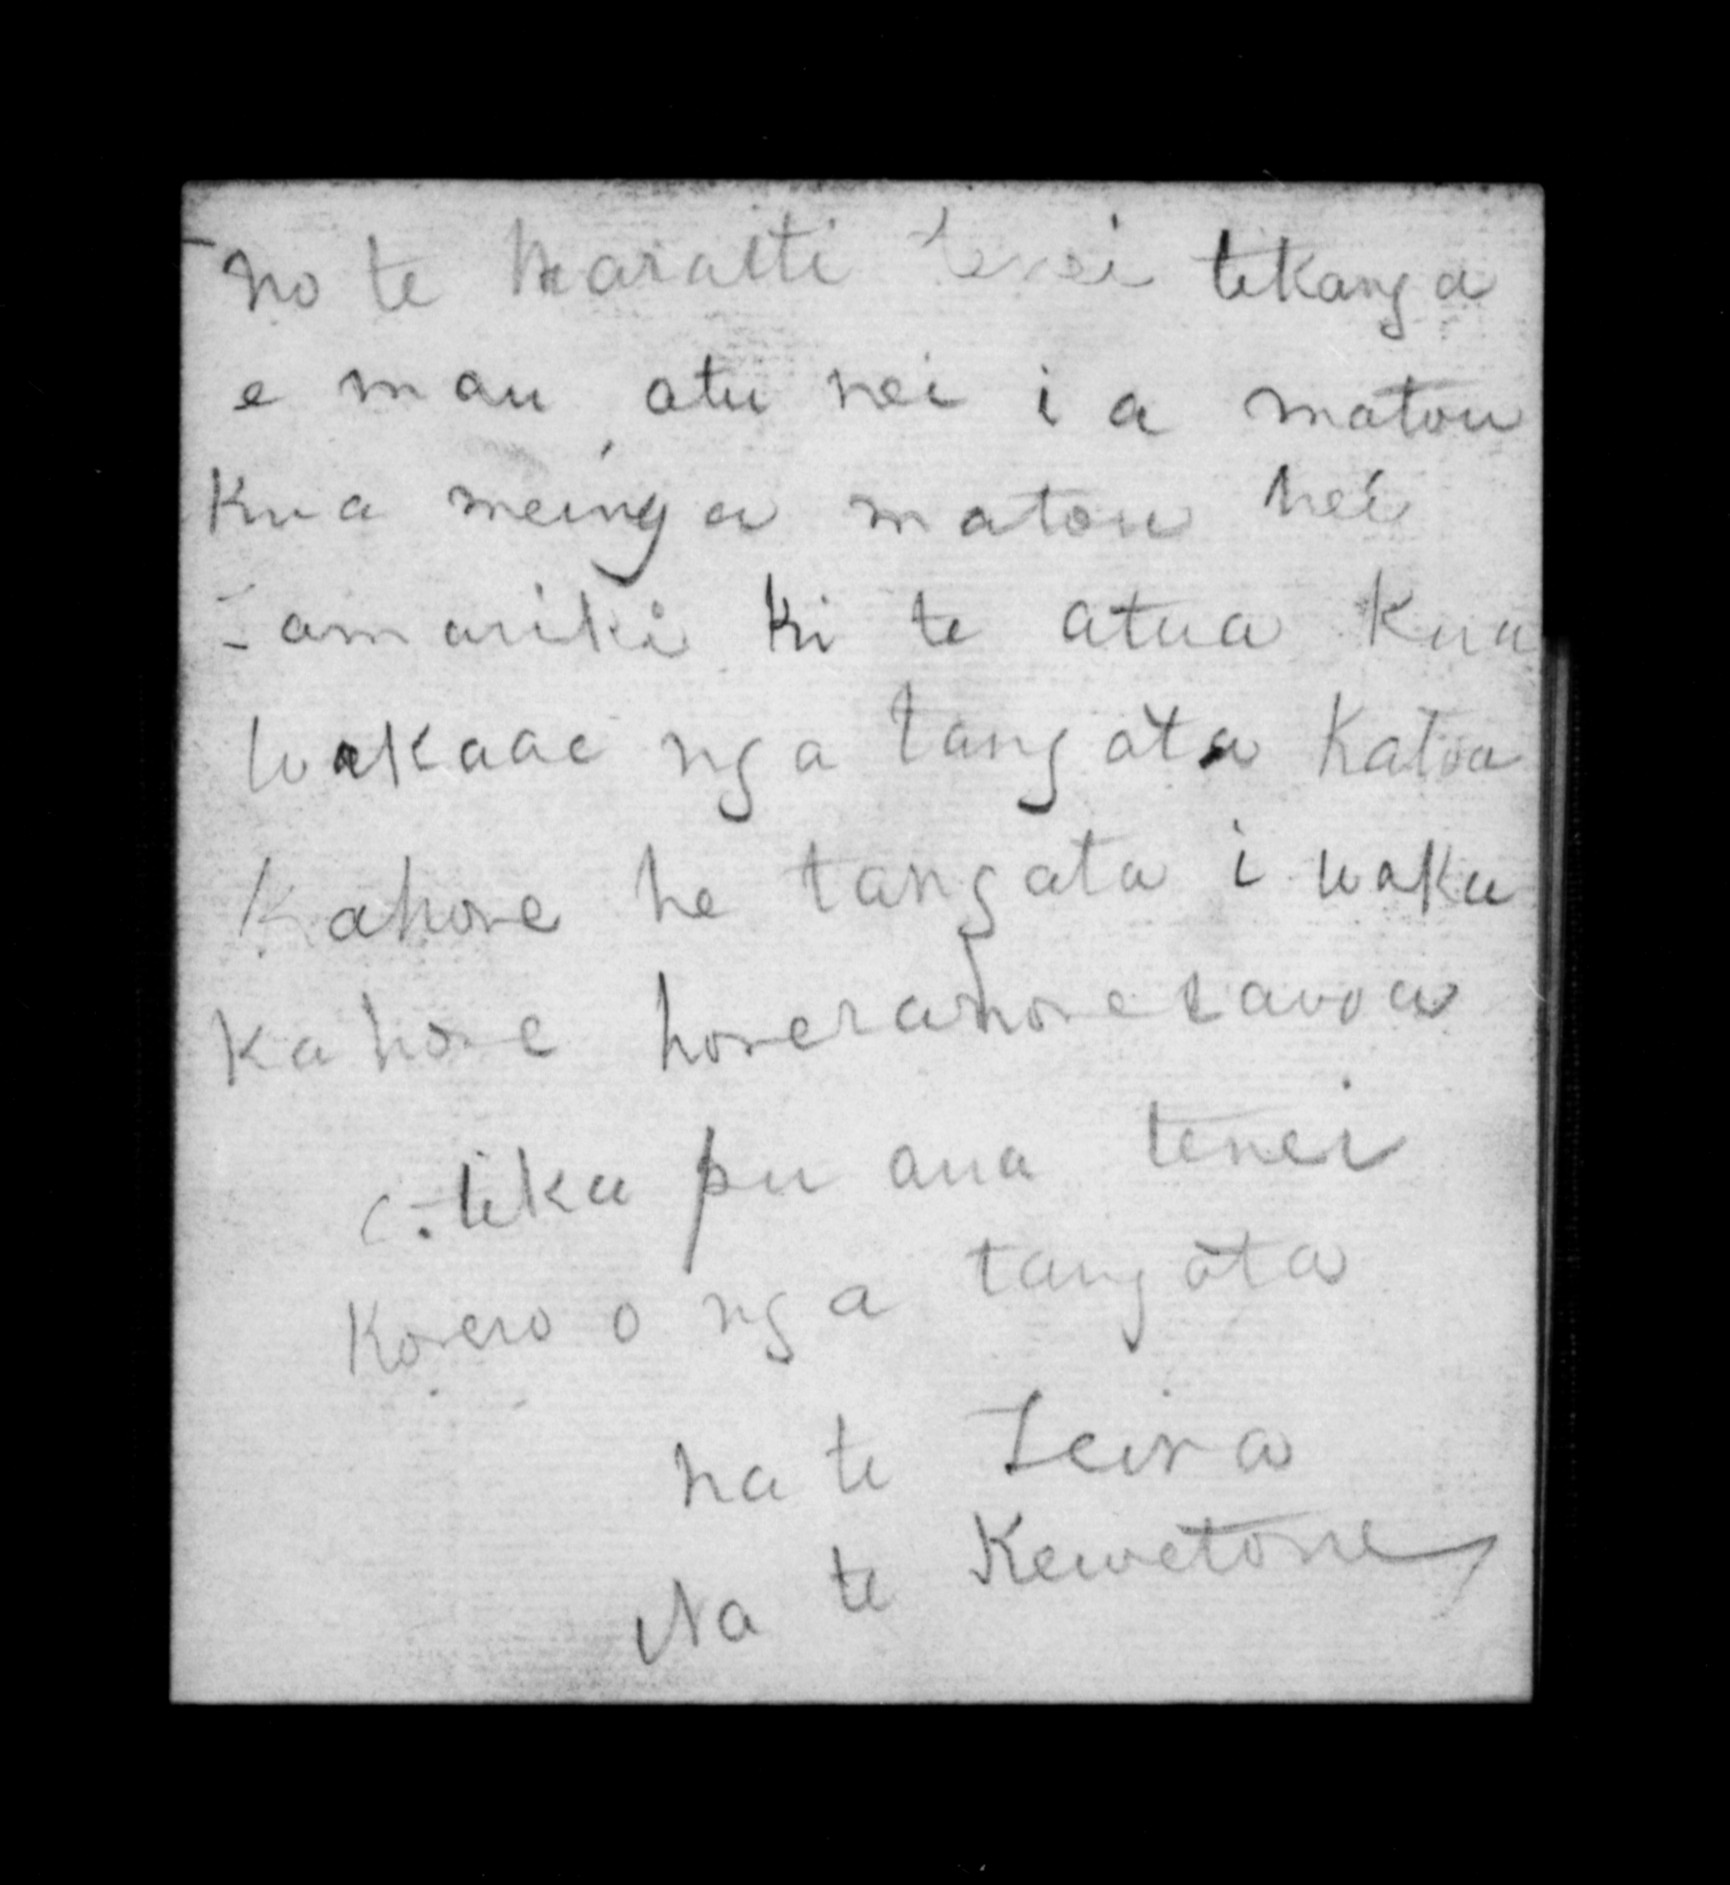 no te Maraiti tenei tekanga
e mau atu nei i a matou
Kua meinga matou hei
tamariki ki te atua Kua
wakaae nga tangata Katoa
Kahore he tangata i waka
Kahore horerahore rawa
e tika pu ana tenei
Korero o nga tangata
na te Teira
Na te Kewetone